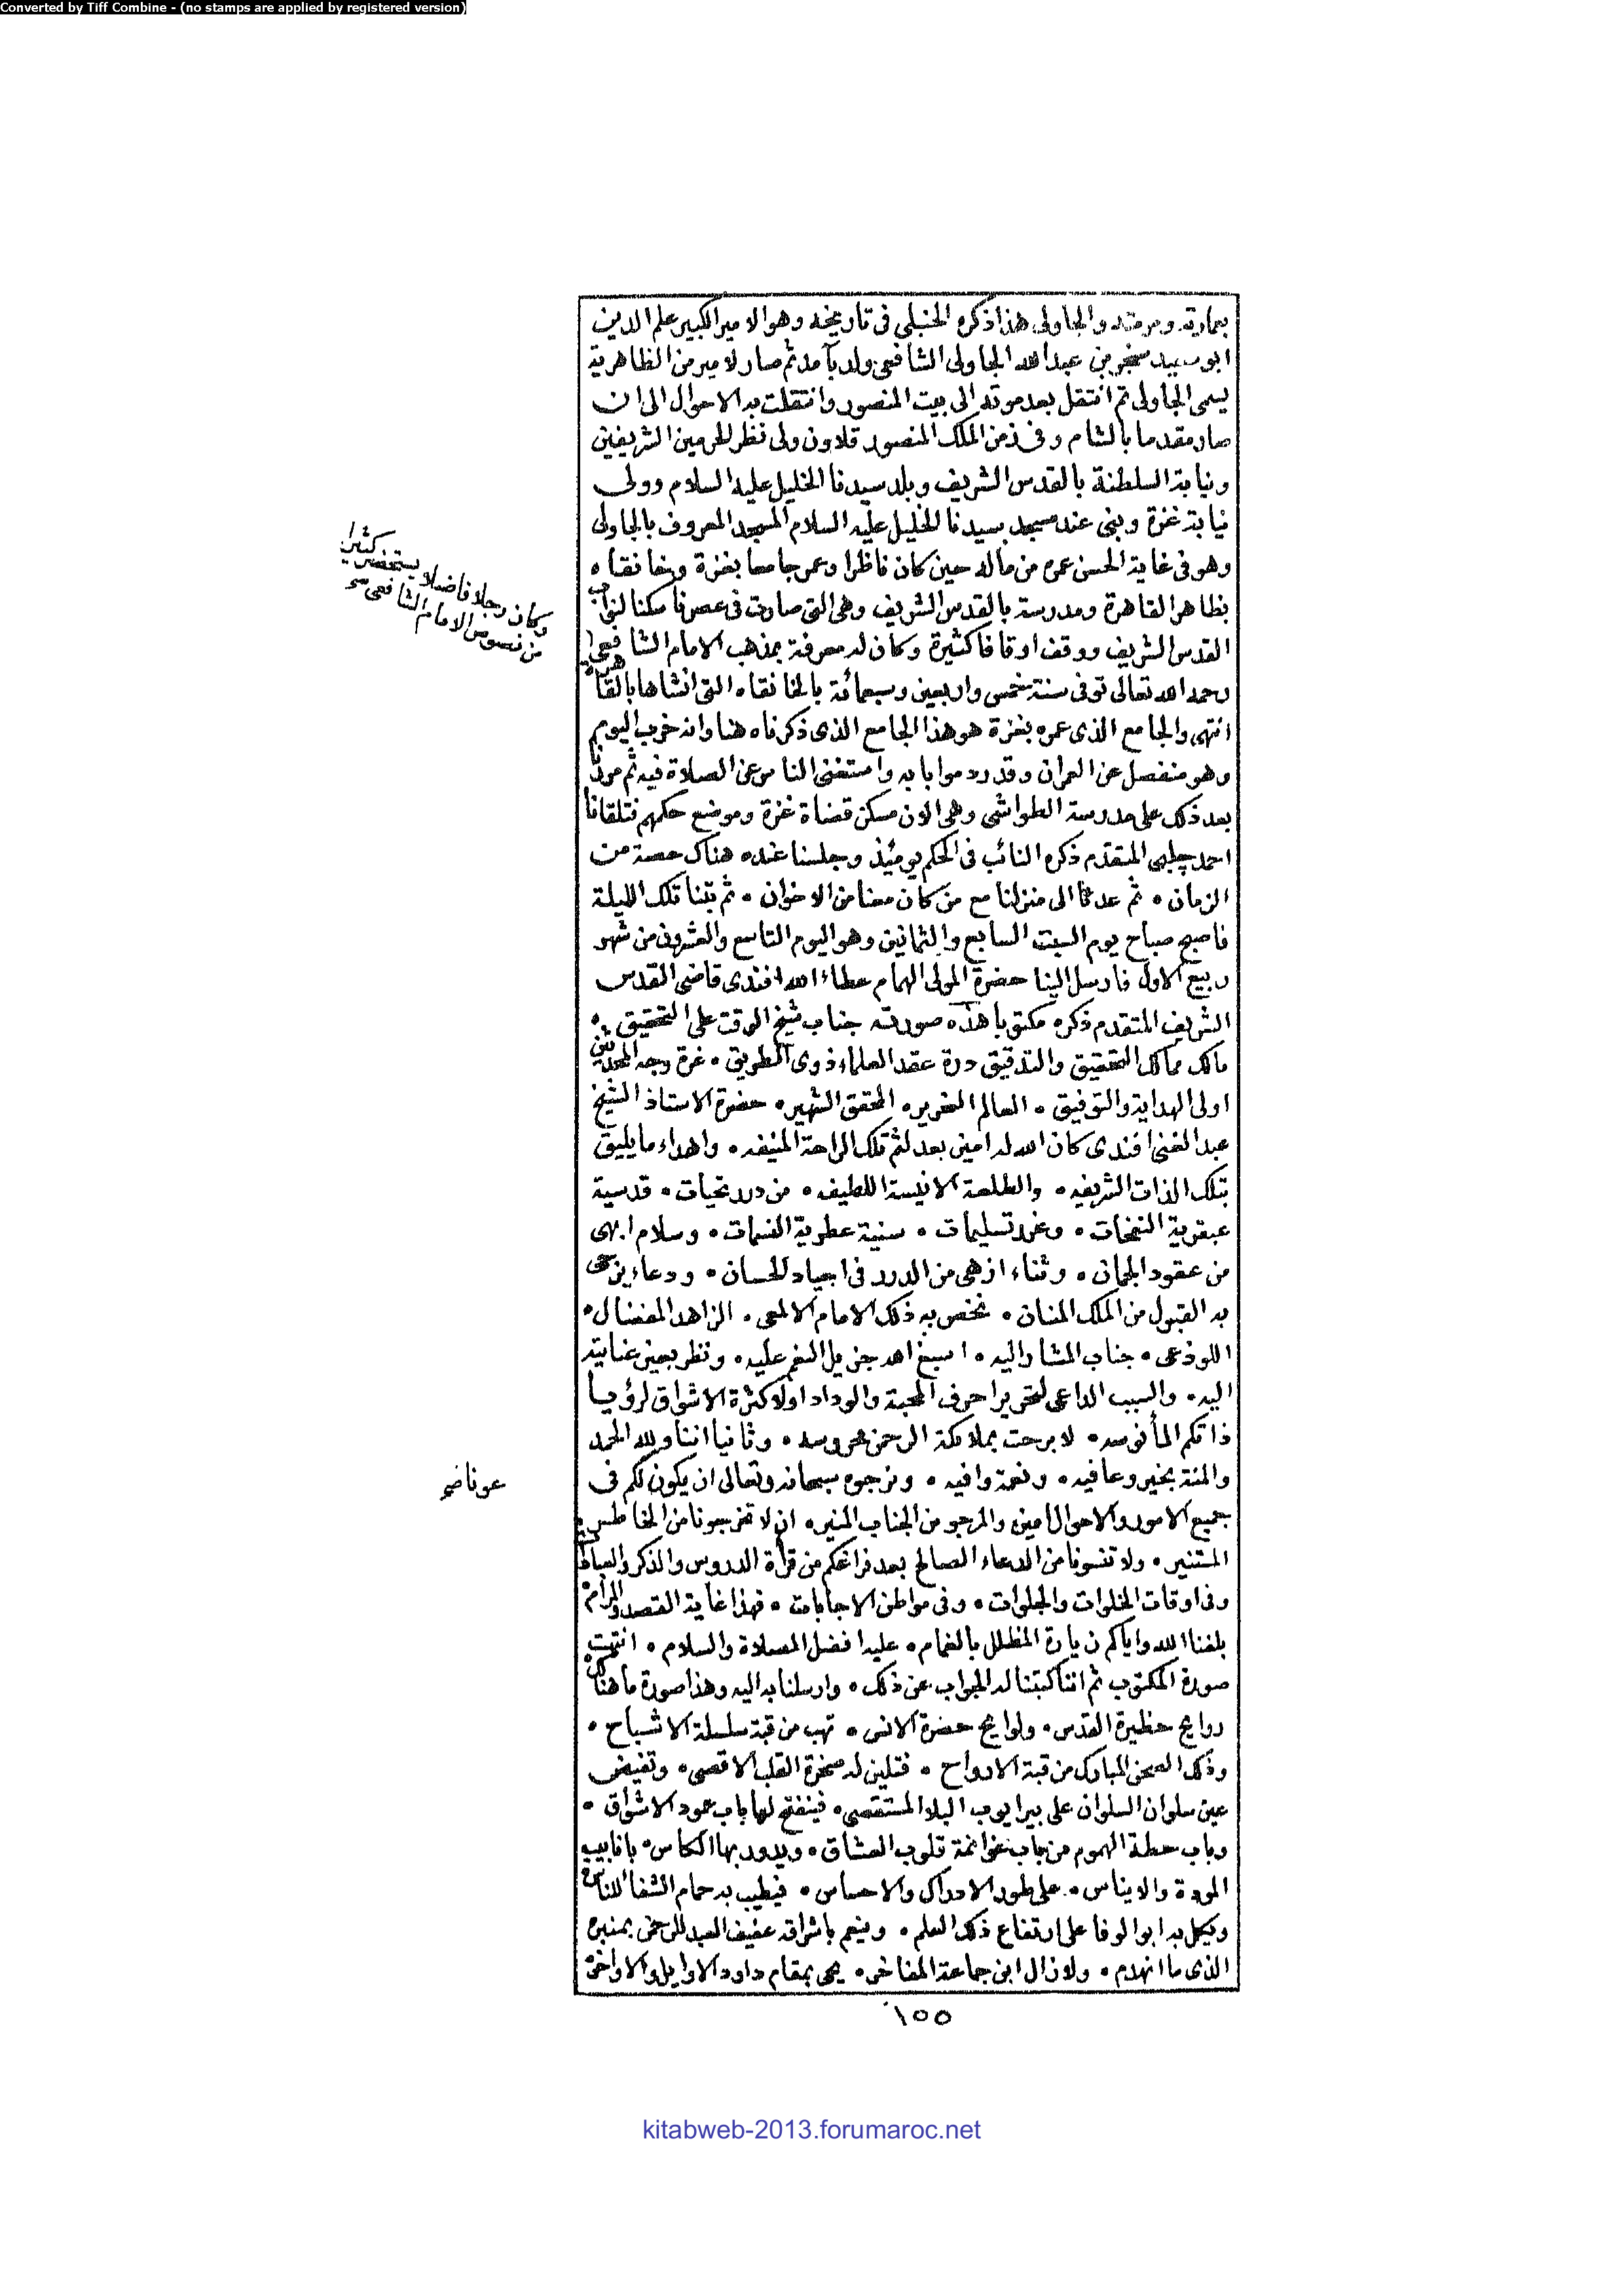 Converted by Tiff Combine - (no stamps are applied by registered version)
بعمارته ومرمته والجاولى هذا ذكره الحنبلى فى تاريخه وهو الامير الكبير علم الدين
ابو سعيد سنجر بن عبد الله الجاولى الشافعى ولد بآمد ثم صار لامير من الظاهرية
يسمى الجاولى ثم انتقل بعد موته الى بيت المنصور وانتقلت به الاحوال الى ان
صار مقدما بالشام وفى زمن الملك المنصور قلاون ولى نظر الحرمين الشريفين
ونيابة السلطنة بالقدس الشريف وبلد سيدنا الخليل عليه السلام وولى
نيابة غزة وبنى عند مسجد سيدنا الخليل عليه السلام المسجد المعروف بالجاولى
وهو فى غاية الحسن عمره من ماله حين كان ناظرا وعمر جامعا بغزة وخانقاه
بظاهر القاهرة ومدرسة بالقدس الشريف وهى التى صارت فى عصرنا سكنا لنواب
القدس الشريف ووقف اوقافا كثيرة وكان له معرفة بمذهب الامام الشافعى
وكان رجلا فاضلا يستحضر كثيرا
من نصوص الامام الشافعى صح
رحمه الله تعالى توفى سنة خمس واربعين وسبعمائة بالخانقاه التى انشاها بالقاهرة
انتهى والجامع الذى عمره بغزة هو هذا الجامع الذى ذكرناه هنا وانه خرب اليوم
وهو منفصل عن العمران وقد ردموا بابه واستغنى الناس عن الصلاة فيه ثم مررنا
بعد ذلك على مدرسة الطواشى وهى الان مسكن قضاة غزة وموضع حكمهم فتلقانا
احمد چلبى المتقدم ذكره النائب فى الحكم يومئذ وجلسنا عنده هناك حصة من
الزمان ۰ ثم عدنا الى منزلنا مع من كان معنا من الاخوان ۰ ثم بتنا تلك الليلة
فاصبح صباح يوم السبت السابع والثمانين وهو اليوم التاسع والعشرون من شهر
ربيع الاول فارسل الينا حضرة المولى الهمام عطاء الله افندى قاضى القدس
الشريف المتقدم ذكره مكتوبا هذه صورته جناب شيخ الوقت على التحقيق ۰
مالك ممالك التحقيق والتدقيق درة عقد العلماء ذوى الطريق ۰ غرة وجه المحدثين
اولى الهداية والتوفيق ۰ العالم النحرير ۰ المحقق الشهير ۰ حضرة الاستاذ الشيخ
عبد الغنى افندى كان الله له امين بعد لثم تلك الراحة المنيفه ۰ واهداء ما يليق
بتلك الذات الشريفه ۰ والطلعة الانيسة اللطيفه ۰ من درر تحيات ۰ قدسية
عبقرية النفحات ۰ وغرر تسليمات ۰ سنية عطرية النسمات ۰ وسلام ابهى
من عقود الجمان ۰ وثناء ازهى من الدرر فى اجياد الحسان ۰ ودعاء يرتجى
به القبول من الملك المنان ۰ نخص به ذلك الامام الالمعى ۰ الزاهد المفضال ۰
اللوذعى ۰ جناب المشار اليه ۰ اسبغ الله جزيل النعم عليه ۰ ونظر بعين عنايته
اليه ۰ والسبب الداعى لتحرير احرف المحبة والوداد اولا كثرة الاشواق لرؤيا
ذاتكم المأنوسه ۰ لا برحت بملائكة الرحمن محروسه ۰ وثانيا اننا ولله الحمد
والمنة بخير وعافيه ۰ ونعمة وافيه ۰ ونرجوه سبحانه وتعالى ان يكون لكم فى
عونا صح
جميع الامور والاحوال امين والمرجو من الجناب المنير ۰ ان لا تخرجونا من الخاطر
المستنير ۰ ولا تنسونا من الدعاء الصالح بعد فراغكم من قرأة الدروس والذكر
وفى اوقات الخلوات والجلوات ۰ وفى مواطن الاجابات ۰ فهذا غاية القصد والمرام
بلغنا الله واياكم زيارة المظلل بالغمام ۰ عليه افضل الصلاة والسلام ۰ انتهت
صورة المكتوب ثم اننا كتبنا له الجواب عن ذلك ۰ وارسلنا به اليه وهذا صورة ما هنالك
روايح حظيرة القدس ۰ ولوايح حضرة الانس ۰ تهب من قبة سلسلة الاشباح ۰
وذلك الصحن المبارك من قبة الارواح ۰ فتلين له صخرة القلب الاقصى ۰ وتفيض
عين سلوان السلوان على بير ايوب البلا المستقصى ۰ فينفتح لها باب عمود الاشواق ۰
وباب حطة الهموم من جاب غوانمة قلوب العشاق ۰ ويدور بها الكاس ۰ بانابيب
المودة والايناس ۰ على طور الادراك والاحساس ۰ فيطيب به حمام الشفا للناس
ويكمل بدر ابو الوفا على ارتفاع ذلك العلم ۰ وينعم باشراقه عفيف العبد للرحمن بمنبره
الذى ما انهدم ۰ ولا زال ابن جماعة المفاخر ۰ يحى بمقام داود الاوايل والاواخر
١٥٥
kitabweb-2013.forumaroc.net